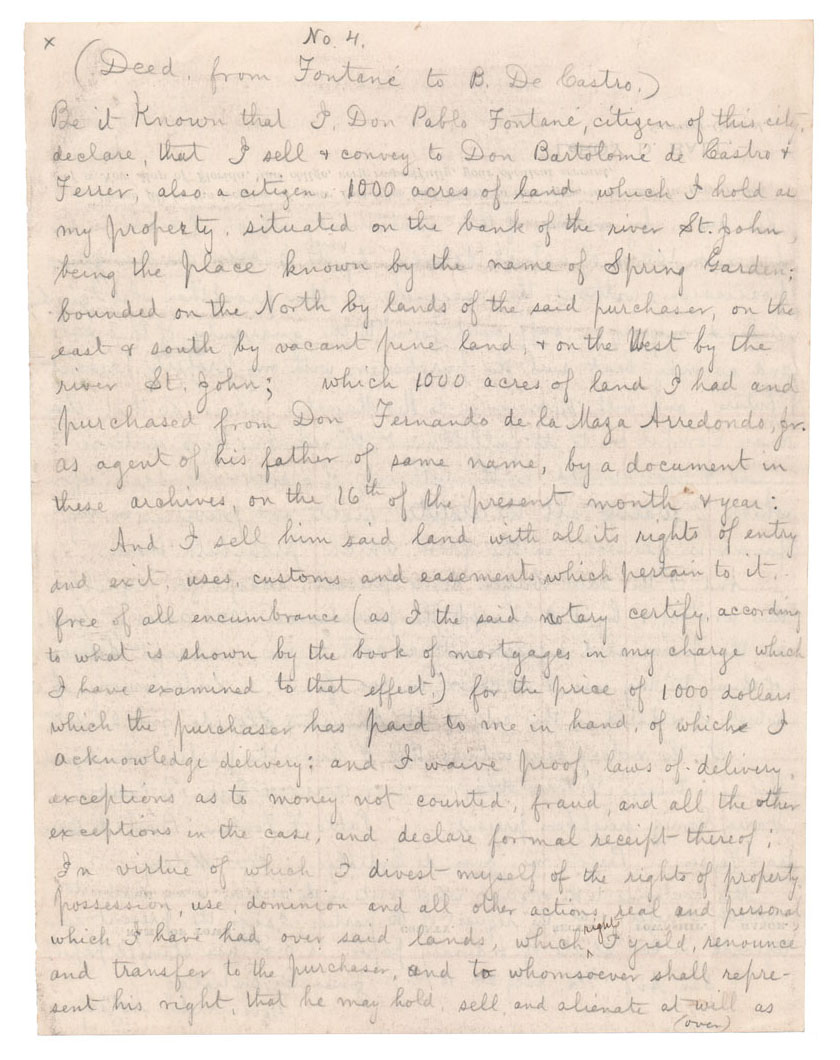 x
No. 4.
(Deed, from Fontané to B. De Castro.)
Be it Known that I, Don Pablo Fontané, citizen of this city,
declare, that I sell & convey to Don Bartolomé de Castro &
Ferrer, also a citizen, 1000 acres of land which I hold as
my property, situated on the bank of the river St. John,
being the place known by the name of Spring Garden;
bounded on the North by lands of the said purchaser, on the
east & south by vacant pine land, & on the West by the
river St. John; which 1000 acres of land I had and
purchased from Don Fernando de la Maza Arredondo, Jr.
as agent of his father of same name, by a document in
these archives, on the 16th of the present month & year:
And I sell him said land with all its rights of entry
and exit, uses, customs and easements which pertain to it,
free of all encumbrance (as I the said notary certify, according
to what is shown by the book of mortgages in my charge which
I have examined to that effect) for the price of 1000 dollars
which the purchaser has paid to me in hand, of which I
acknowledge delivery: and I waive proof, laws of delivery,
exceptions as to money not counted, fraud, and all the other
exceptions in the case, and declare formal receipt thereof;
In virtue of which I divest myself of the rights of property,
possession, use, dominion and all other actions, real and personal,
which I have had over said lands, which right I yield, renounce
and transfer to the purchaser, and to whomsoever shall repre-
sent his right, that he may hold, sell and alienate at will as
(over)